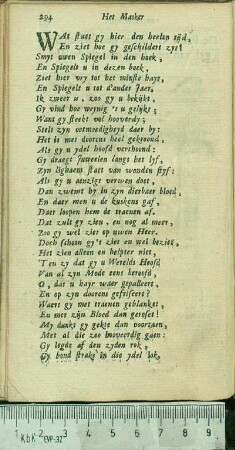 294 Het Masker
WAt staet gy hier den heelen tijd,
En ziet hoe gy geschildert zyt?
Smyt uwen Spiegel in den hoek,
En Spiegelt u in dezen boek,
Ziet hier vry tot het minste hayr,
En Spiegelt u tot d'ander Jaer,
Ik zweer u, zoo gy u bekijkt,
Gy vind hoe weynig 't u gelijkt;
Want gy steekt vol hooverdy;
Stelt zyn ootmoedigheyd daer by:
Het is met doorens heel gekroond,
Als gy u ydel hoofd verthoond:
Gy draegt Juweelen langs het lyf,
Zyn lighaem staet van wonden styf:
Als gy u aenzigt verwen doet,
Dan zwemt hy in zyn dierbaer bloed,
En daer men u de kuskens gaf,
Daer loopen hem de traenen af.
Dat zult gy zien, en nog al meer,
Zoo gy wel ziet op uwen Heer.
Doch schoon gy't ziet en wel beziet,
Het zien alleen en helpter niet,
Ten zy dat gy u Werelds Hoofd
Van al zyn Mode eens berooft,
O, dat u hayr waer gepalleert,
En op zyn doorens gefriseert?
Waert gy met traenen geblanket,
En met zijn Bloed dan geroset!
My dunkt gy gekte dan voorzaen,
Met al die zoo hooverdig gaen:
Gy legde af den zyden rok,
Gy bond straks in die ydel lok,
1 2 3 4 5 6 7 8 9
KbK